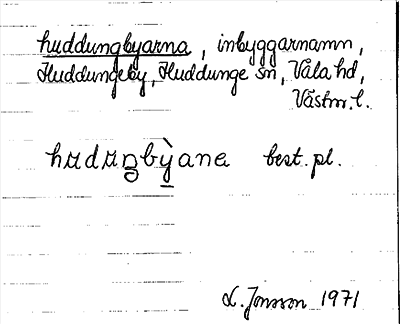 huddungbyarna, inbyggarnamn,
Huddungeby, Huddunge sn, Våla hd,
Västm. l.
huduŋbỳane best. pl.
L. Jonsson 1971